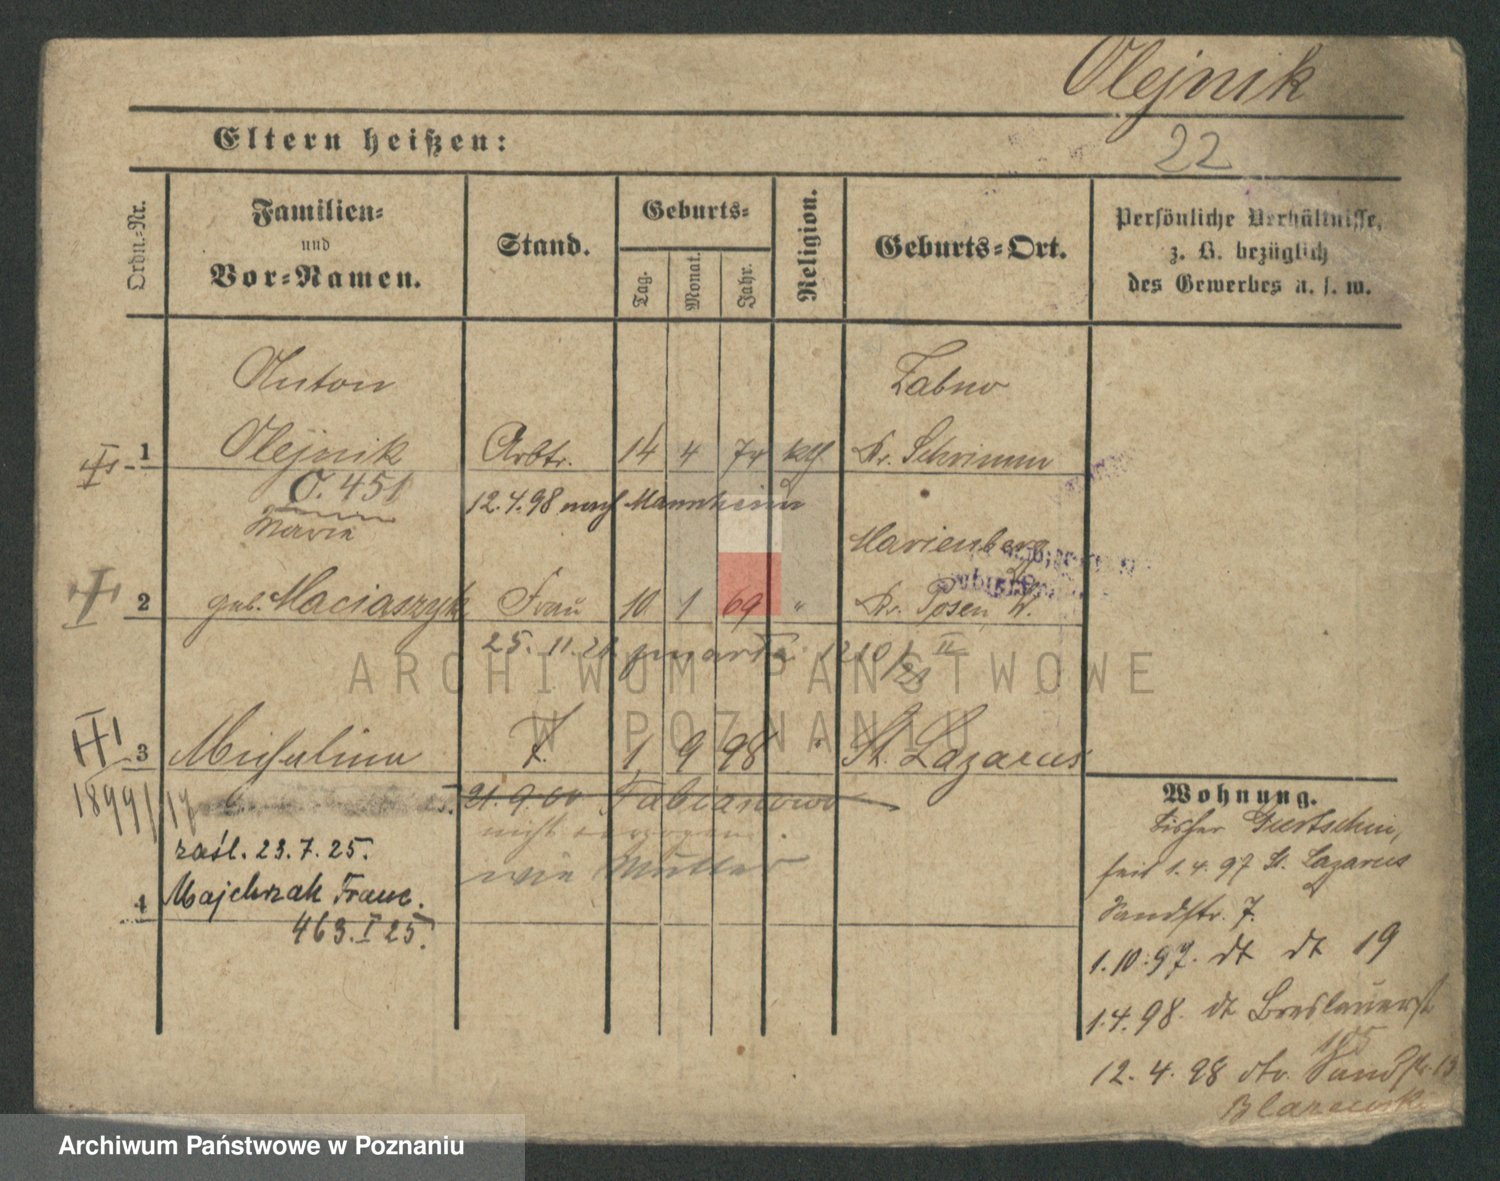 Olejnik
22
Eltern heißen:
Ordn.-Nr.
Familien-
und
Vor-Namen.
Stand.
Geburts-
Tag.
Monat.
Jahr.
Religion.
Geburts-Ort.
Persönliche Verhältnisse,
z. B. bezüglich
des Gewerbes u. s. w.
Anton
Zabno
1 Olejnik Arbtr. 14 4 74 kth Kr. Schrimm
O. 451
12.4.98 nach Mannheim
Maria
Marienberg
2 geb. Maciaszyk Frau 10 1 69 " Kr. Posen W.
25. 11. 21 zmarła 1210/21 II
III 3 Michalina T. 1 9 98 " St. Lazarus
1899/17
21.9.00 Fabianowo
nicht verzogen
wie Mutter
zaśl. 23.7.25.
4 Majchrzak Franc.
463. I 25.
Wohnung.
bisher Gurtschin,
seit 1.4.97 St. Lazarus
Sandstr. 7.
1.10.97. dt dt 19
1.4.98. dt Breslauerst
12.4.98 dto. Sandstr. 13
ARCHIWUM PAŃSTWOWE
W POZNANIU
Archiwum Państwowe w Poznaniu